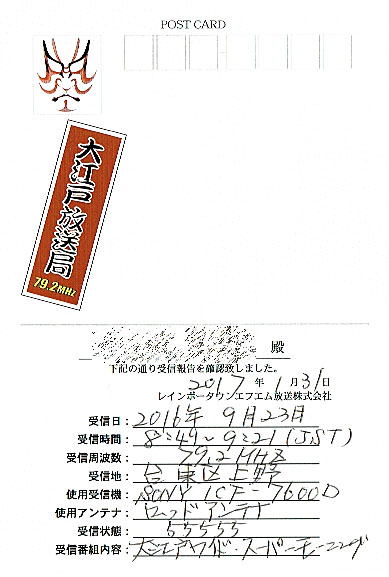 POST CARD
大江戸放送局
79.2MHz
殿
下記の通り受信報告を確認致しました。
2017年1月31日
レインボータウンエフエム放送株式会社
受信日：2016年9月23日
受信時間：8:49～9:21(JST)
受信周波数：79.2MHz
受信地：台東区上野
使用受信機：SONY ICF-7600D
使用アンテナ：ロッドアンテナ
受信状態：55555
受信番組内容：大江戸ワイド・スーパーモーニング